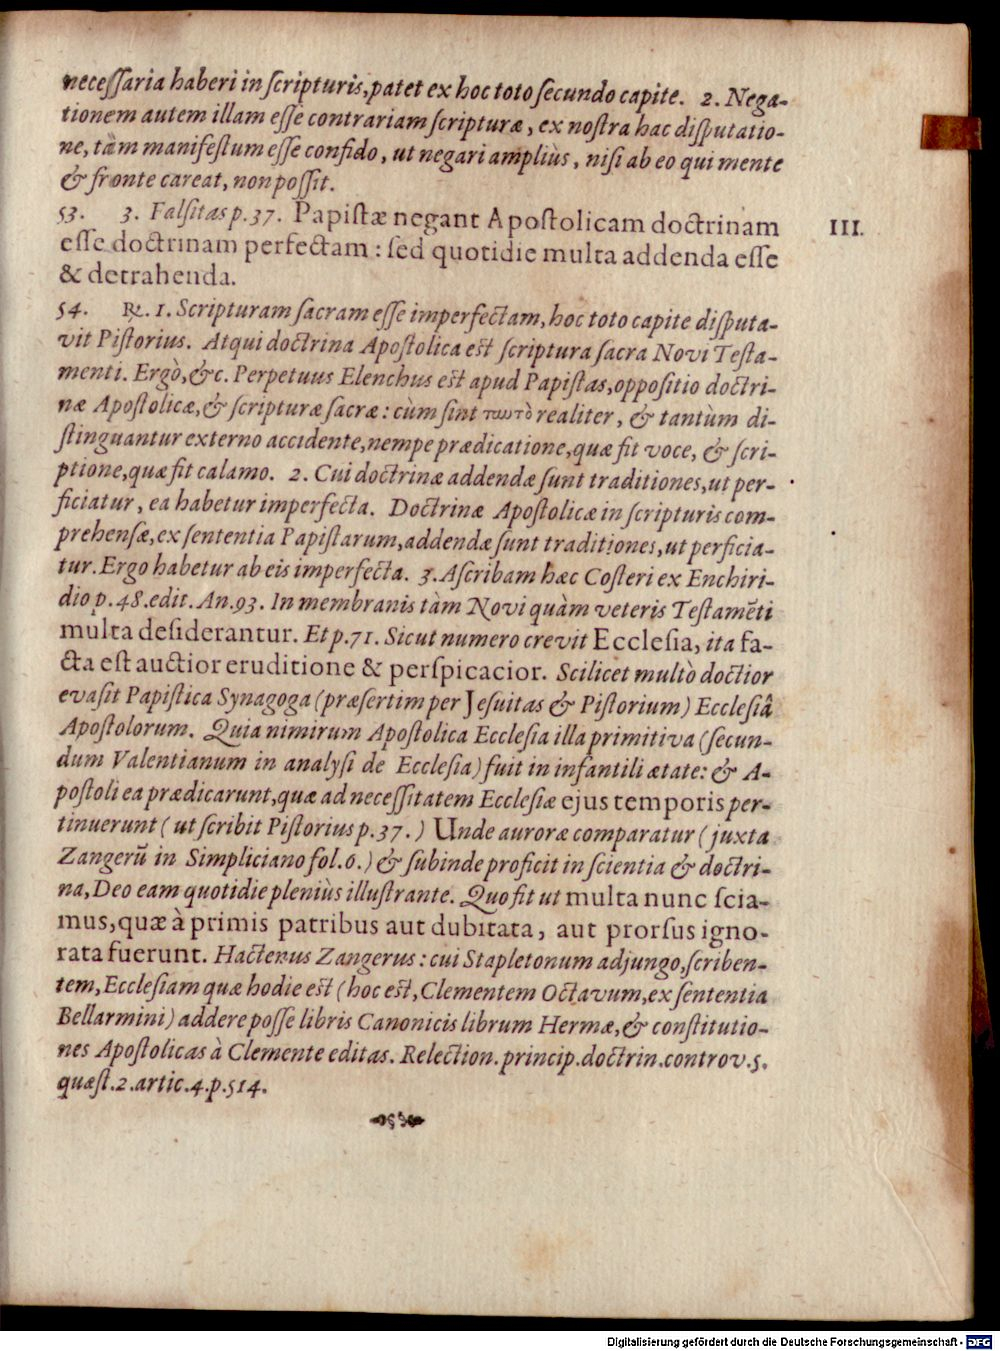 neceſſaria haberi in ſcripturis, patet ex hoc toto ſecundo capite. 2. Nega-
tionem autem illam eſſe contrariam ſcripturæ, ex noſtra hac diſputatio-
ne, tàm manifeſtum eſſe confido, ut negari ampliùs, niſi ab eo qui mente
& fronte careat, non poſſit.
53. 3. Falſitas p. 37. Papiſtæ negant Apoſtolicam doctrinam
eſſe doctrinam perfectam: ſed quotidie multa addenda eſſe
& detrahenda.
III.
54. ℞. 1. Scripturam ſacram eſſe imperfectam, hoc toto capite diſputa-
vit Piſtorius. Atqui doctrina Apoſtolica eſt ſcriptura ſacra Novi Teſta-
menti. Ergò, &c. Perpetuus Elenchus eſt apud Papiſtas, oppoſitio doctri-
næ Apoſtolicæ, & ſcripturæ ſacræ: cùm ſint ταυτὸ realiter, & tantùm di-
ſtinguantur externo accidente, nempe prædicatione, quæ fit voce, & ſcri-
ptione, quæ fit calamo. 2. Cui doctrinæ addendæ ſunt traditiones, ut per-
ficiatur, ea habetur imperfecta. Doctrinæ Apoſtolicæ in ſcripturis com-
prehenſæ, ex ſententia Papiſtarum, addendæ ſunt traditiones, ut perficia-
tur. Ergo habetur ab eis imperfecta. 3. Aſcribam hæc Coſteri ex Enchiri-
dio p. 48. edit. An. 93. In membranis tàm Novi quàm veteris Teſtamẽti
multa deſiderantur. Et p. 71. Sicut numero crevit Eccleſia, ita fa-
cta eſt auctior eruditione & perſpicacior. Scilicet multò doctior
evaſit Papiſtica Synagoga (præſertim per Jeſuitas & Piſtorium) Eccleſiâ
Apoſtolorum. Quia nimirum Apoſtolica Eccleſia illa primitiva (ſecun-
dum Valentianum in analyſi de Eccleſia) fuit in infantili ætate: & A-
poſtoli ea prædicarunt, quæ ad neceſſitatem Eccleſiæ ejus temporis per-
tinuerunt (ut ſcribit Piſtorius p. 37.) Unde auroræ comparatur (juxta
Zangerũ in Simpliciano fol. 6.) & ſubinde proficit in ſcientia & doctri-
na, Deo eam quotidie pleniùs illuſtrante. Quo fit ut multa nunc ſcia-
mus, quæ à primis patribus aut dubitata, aut prorſus igno-
rata fuerunt. Hactenus Zangerus: cui Stapletonum adjungo, ſcriben-
tem, Eccleſiam quæ hodie eſt (hoc eſt, Clementem Octavum, ex ſententia
Bellarmini) addere poſſe libris Canonicis librum Hermæ, & conſtitutio-
nes Apoſtolicas à Clemente editas. Relection. princip. doctrin. controv. 5.
quæſt. 2. artic. 4. p. 514.
Digitalisierung gefördert durch die Deutsche Forschungsgemeinschaft - DFG